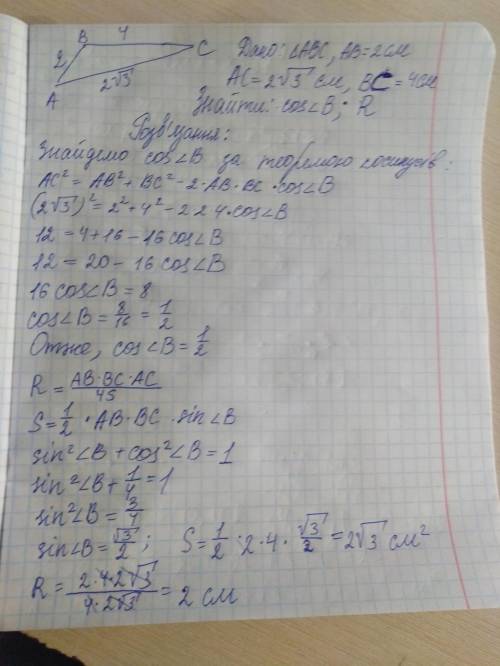 B 4 C
2
A 2√3
Дано: △ABC, AB=2см
AC=2√3 см, BC=4см
Знайти: cos∠B; R
Розв'язання:
Знайдемо cos∠B за теоремою косинусів:
AC² = AB² + BC² - 2·AB·BC·cos∠B
(2√3)² = 2² + 4² - 2·2·4·cos∠B
12 = 4+16 - 16cos∠B
12 = 20 - 16 cos∠B
16 cos∠B = 8
cos∠B = 8/16 = 1/2
Отже, cos∠B = 1/2
R = AB·BC·AC/4S
S = 1/2 · AB·BC · sin∠B
sin²∠B + cos²∠B = 1
sin²∠B + 1/4 = 1
sin²∠B = 3/4
sin∠B = √3/2; S = 1/2 · 2·4 · √3/2 = 2√3 см²
R = 2·4·2√3/4·2√3 = 2 см